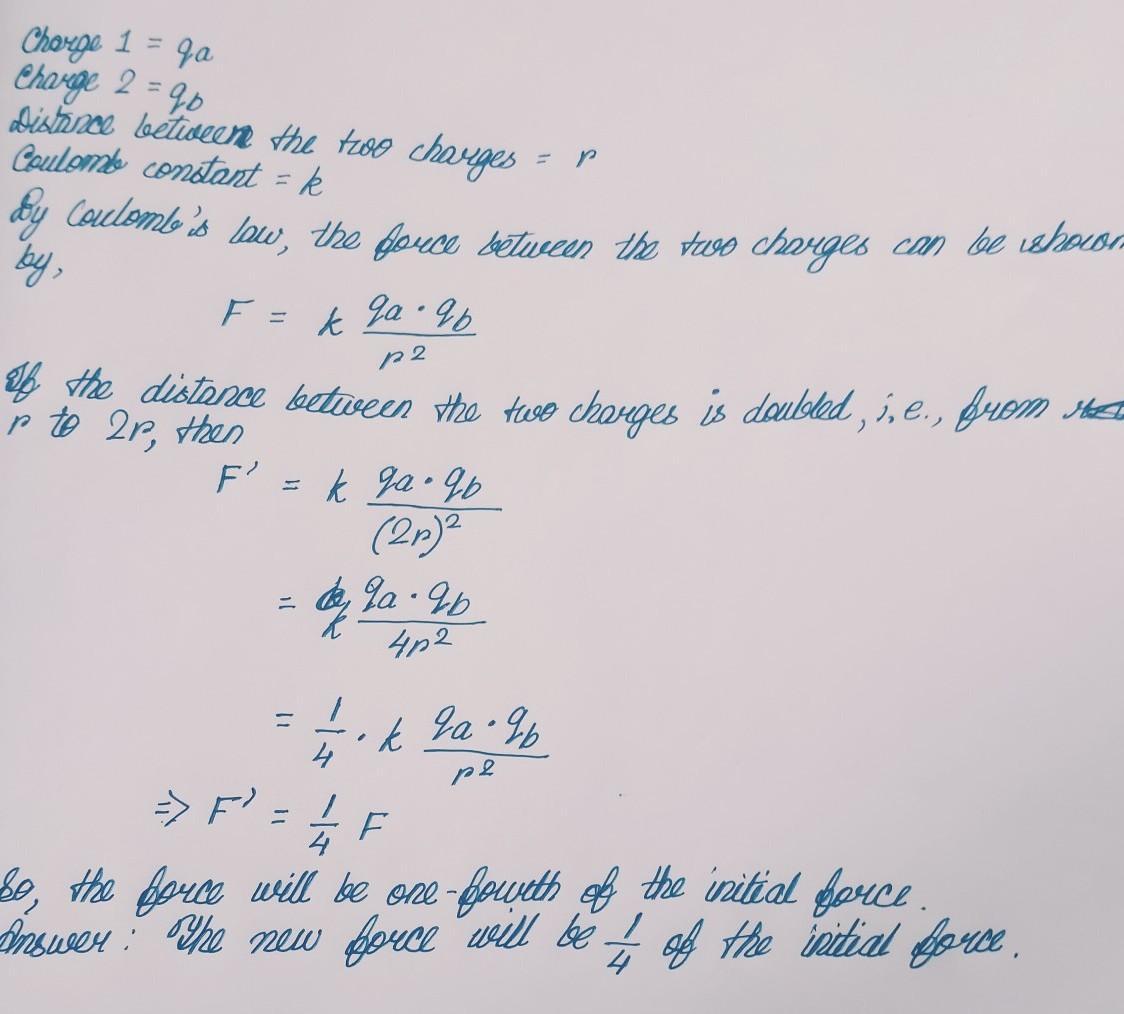 Charge 1 = qa
Charge 2 = qb
Distance between the two charges = r
Coulomb constant = k
By Coulomb's law, the force between the two charges can be shown
by,
F = k qa · qb / r²
If the distance between the two charges is doubled, i.e., from
r to 2r, then
F' = k qa · qb / (2r)²
= k qa · qb / 4r²
= 1/4 · k qa · qb / r²
⇒ F' = 1/4 F
So, the force will be one-fourth of the initial force.
Answer: The new force will be 1/4 of the initial force.